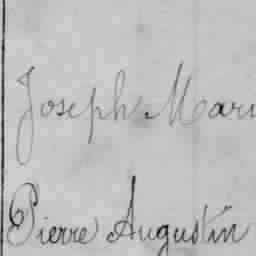 Joseph Mari
Pierre Augustin